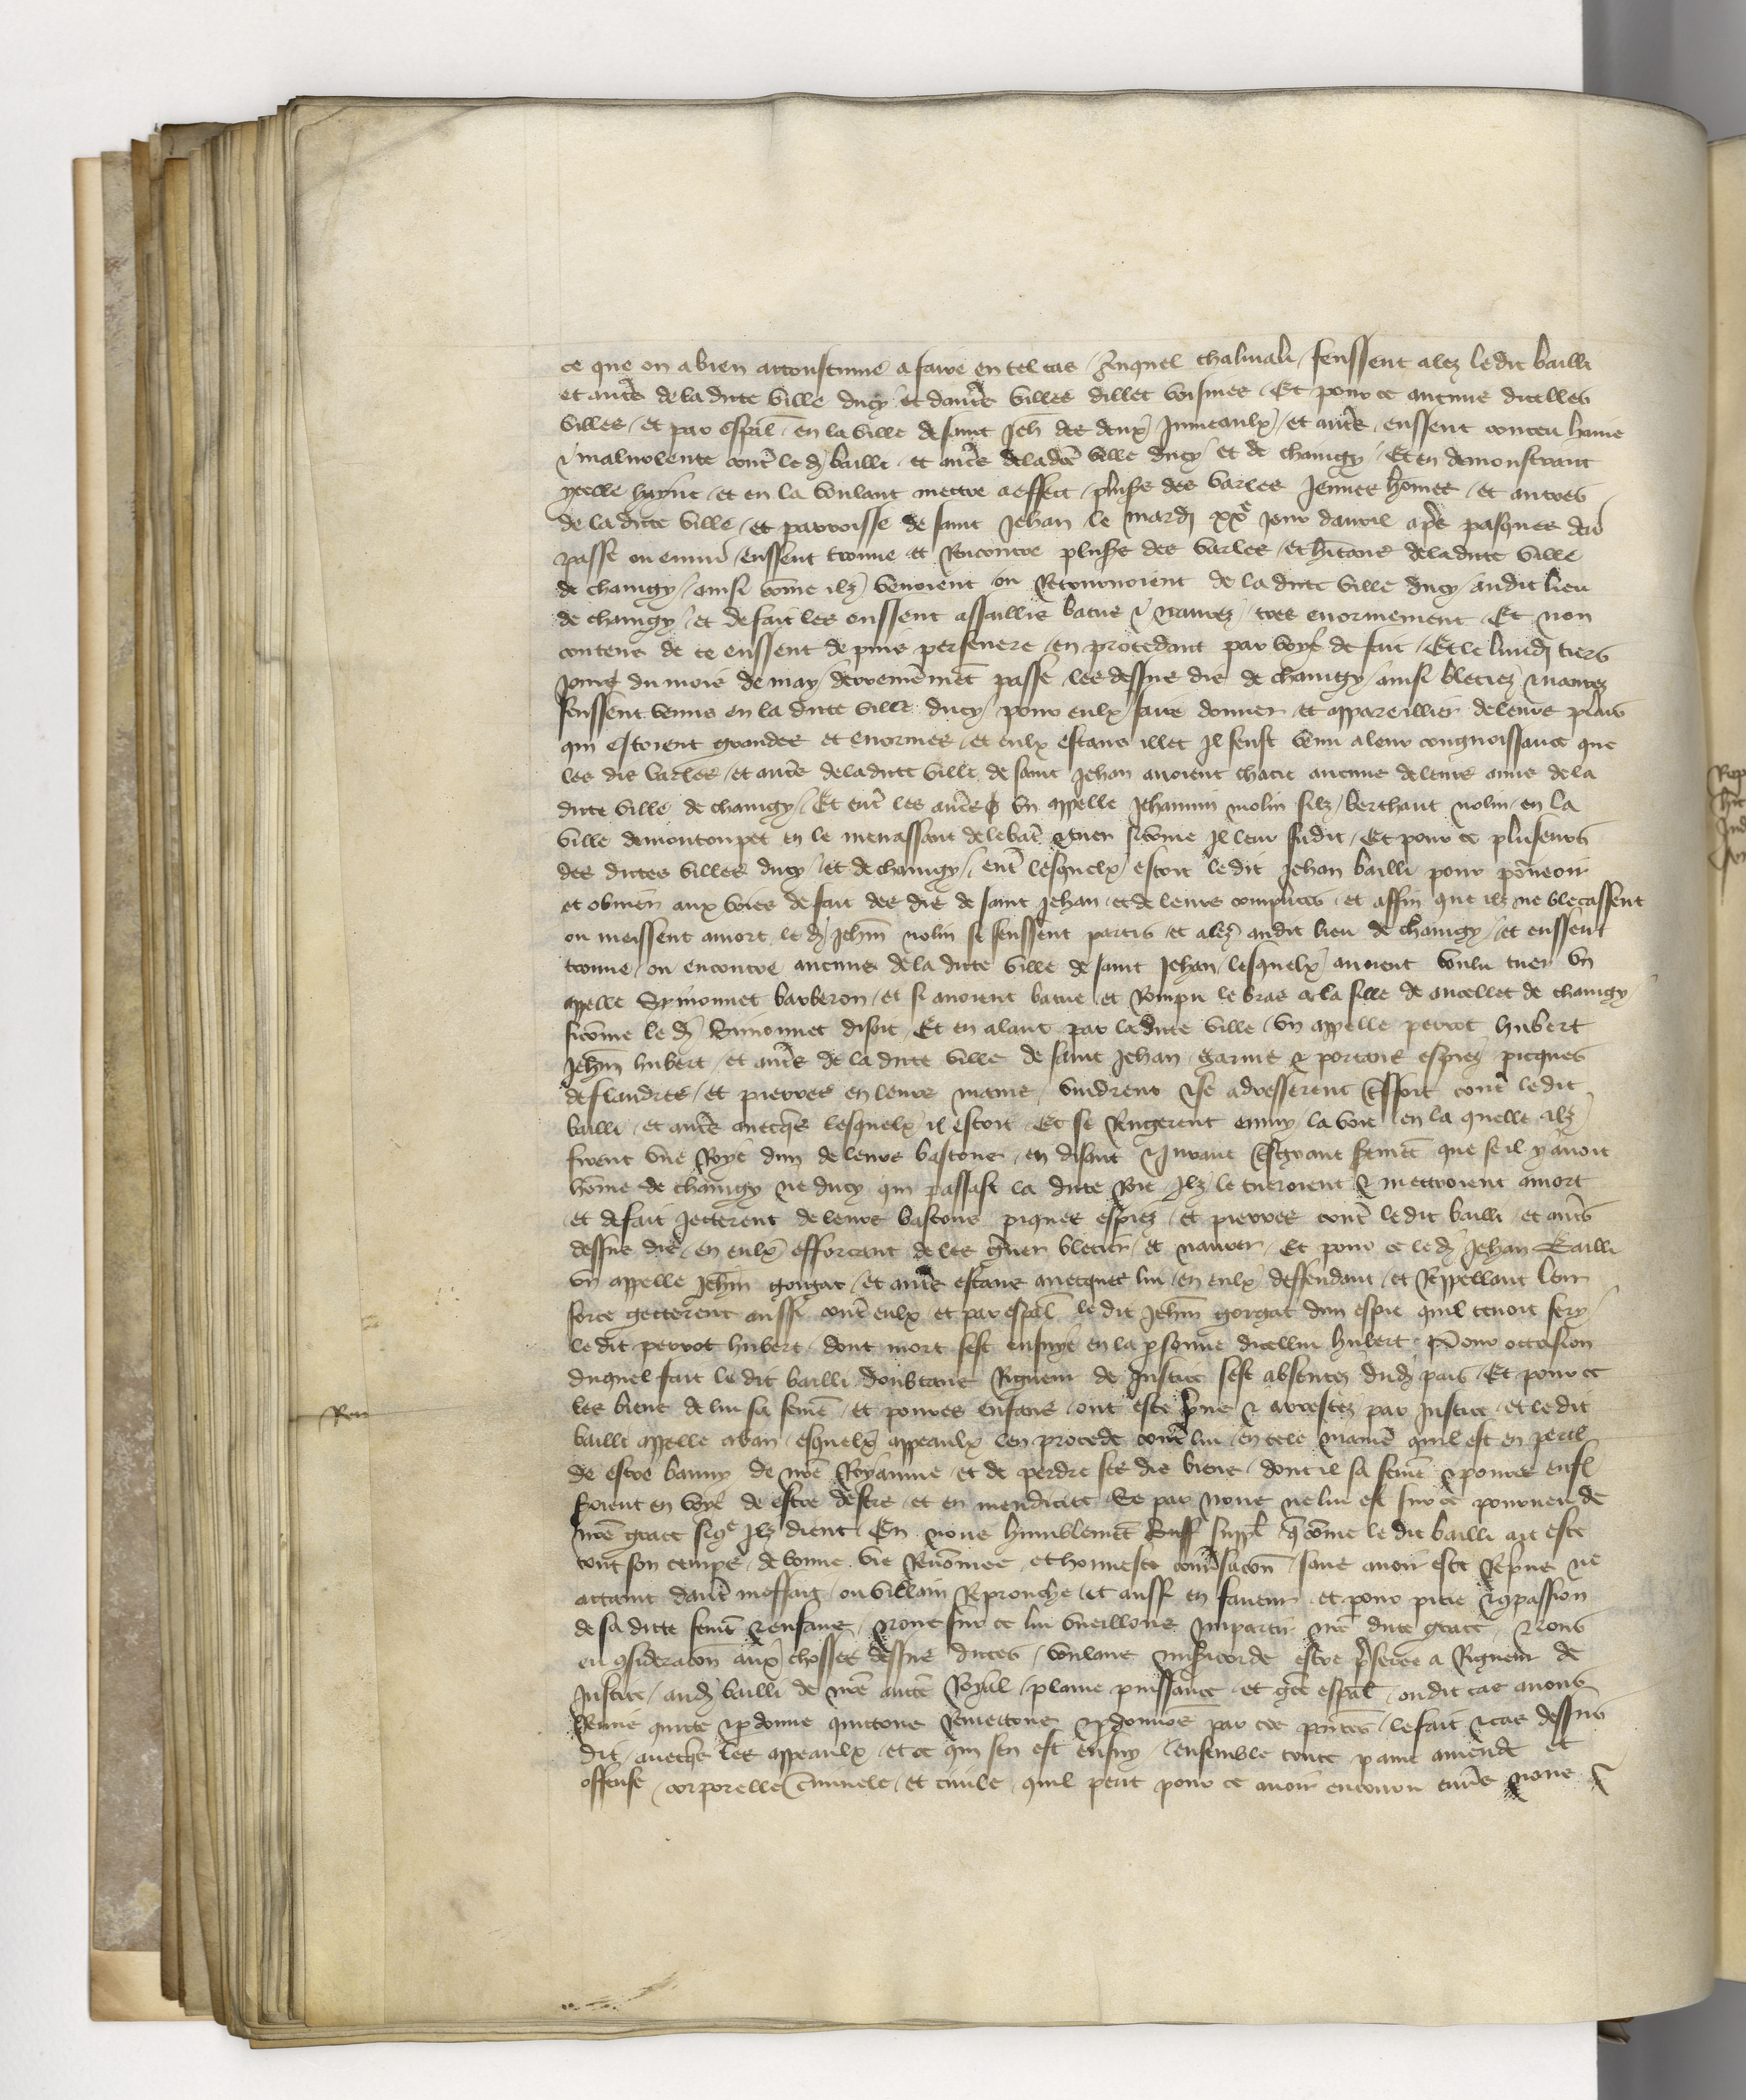 ce que on a bien acoustumé a faire en tel cas / Auquel chalivali / feussent alez ledit bailli
et autrs de la dicte ville ducy et dautrs villes dillec voisines / Et pour ce aucuns dicelles
villes / et par espal en la ville de saint Jeh des deux Jumeaulx / et autrs eussent conceu haine
& malivolence contr led bailli et autrs de lade ville ducy et de chanigy / Et en demonstrant
ycelle hayne / et en la voulant mettre a effect / plusrs des varles jeunes homes / et autres
de la dicte ville / et parroisse de saint Jehan le mardj xxe jour davril aprs pasques derr
passe ou environ / eussent trouve et Rencontre plusrs des varles / et hitans de la dicte ville
de chanigy / ainsi come ilz venoient ou Retournoient de la dicte ville ducy audit lieu
de chanigy / et de fait les eussent assaillis batus & navrez / tres enormement / Et non
contens de ce eussent depuis persevere / en procedant par voye de fait / Et le lundj tiers
jour du mois de may derrenieremet passe les dessus dis de chanigy ainsi bleciez & navrez
feussent venus en la dicte ville ducy / pour eulx faire donner et appareillier de leurs plaies
qui estoient grandes et enormes / et eulx estans illec Il feust venu a leur congnoissance que
les dis varles / et autrs de la dicte ville de saint Jehan avoient chacie aucuns de leurs amis de la
dicte ville de chanigy / Et entr les autres un appelle Jehannin nolin filz berthaut nolin / en la
ville demontoupet en le menassant de le batr & tuer sicome Il leur fu dit / Et pour ce pluseurs
des dictes villes ducy / et de chanigy / entr lesquelx estoit ledit Jehan bailli pour pourveoir
et obvier aux voies de fait des dis de saint Jehan et de leurs complices / et affin que ilz ne blecassent
ou meissent amort led Jehm nolin se feussent partis et alez audit lieu de chanigy / et eussent
trouve / ou encontre aucuns de la dicte ville de saint Jehan / lesquelx avoient voulu tuer un
appelle Symonnet barberon / et si avoient batue et Rompu le bras a la fille de ancellet de chanigy /
sicome led Simonnet disoit / Et en alant par la dicte ville / un appelle perrot hubert
Jehm hubert / et autrs de la dicte ville de saint Jehan / garnis & portans espiez picques
de flandres / et pierres en leurs mains / vindrent & se adresserent contr ledit
bailli et autrs avecqs lesquelx il estoit Et se Rengerent emmy la voie en la quelle ilz
firent une Roye dun de leurs bastons / en disant & jurant que se il y avoit
home de chanigy ne ducy qui passast la dicte Roie Ilz le tueroient & mettroient amort
et de fait jetterent de leurs bastons piques espiez / et pierres contr ledit bailli / et autrs
dessus dis / en eulx efforcant de les grever blecier et navrer / Et pour ce led Jehan Bailli
un appelle Jehm gorgat / et autrs estans avecques lui / en eulx deffendant / et Reppellant leur
force getterent aussi contr eulx / et par espal ledit Jehm gorgat dun espie quil tenoit fery
ledit perrot hubert / dont mort sest ensuye en la psonne dicellui hubert / Pour occasion
duquel fait ledit bailli doubtant Rigueur de justice sest absentez dud pais / Et pour ce
les biens de lui sa feme / et povres enfans ont este prins & arrestez par justice et ledit
bailli appelle aban / esquelx appeaulx len procede contr lui / en tele maniere quil est en peril
de estre banny de nre Royaume / et de perdre ses dis biens / dont il sa feme & povres enfs
seroient en voye de estre desers / et en mendicite Se par nous ne lui est sur ce pourveu de
nre grace sicoe Ilz dient / En nous humblemet supplt q come le dit bailli ait este
tout son temps de bonne vie Renomee / et honneste convsacon / sans avoir este Reprins ne
attaint dautr meffait / ou villain Reprouche / et aussi en faveur et pour pitie & 9passion
de sa dicte feme & enfans / Nous sur ce lui vueillons Impartir nre dicte grace / Nous
en 9sideracon aux choses dessus dictes / voulans misericorde estre prferee a Rigueur de
Justice / aud bailli de nre aucte Royal / plaine puissance et grce espal / ou dit cas avons
Remis quicte & pdonne quictons Remettons & pdonnons par ces prntes / le fait & cas dessus
dit / avecqs les appeaulx / et ce qui sen est ensuy / ensemble toute paine amende et
offense / corporelle criminele / et civile / quil peut pour ce avoir encouru envrs nous &
Ren